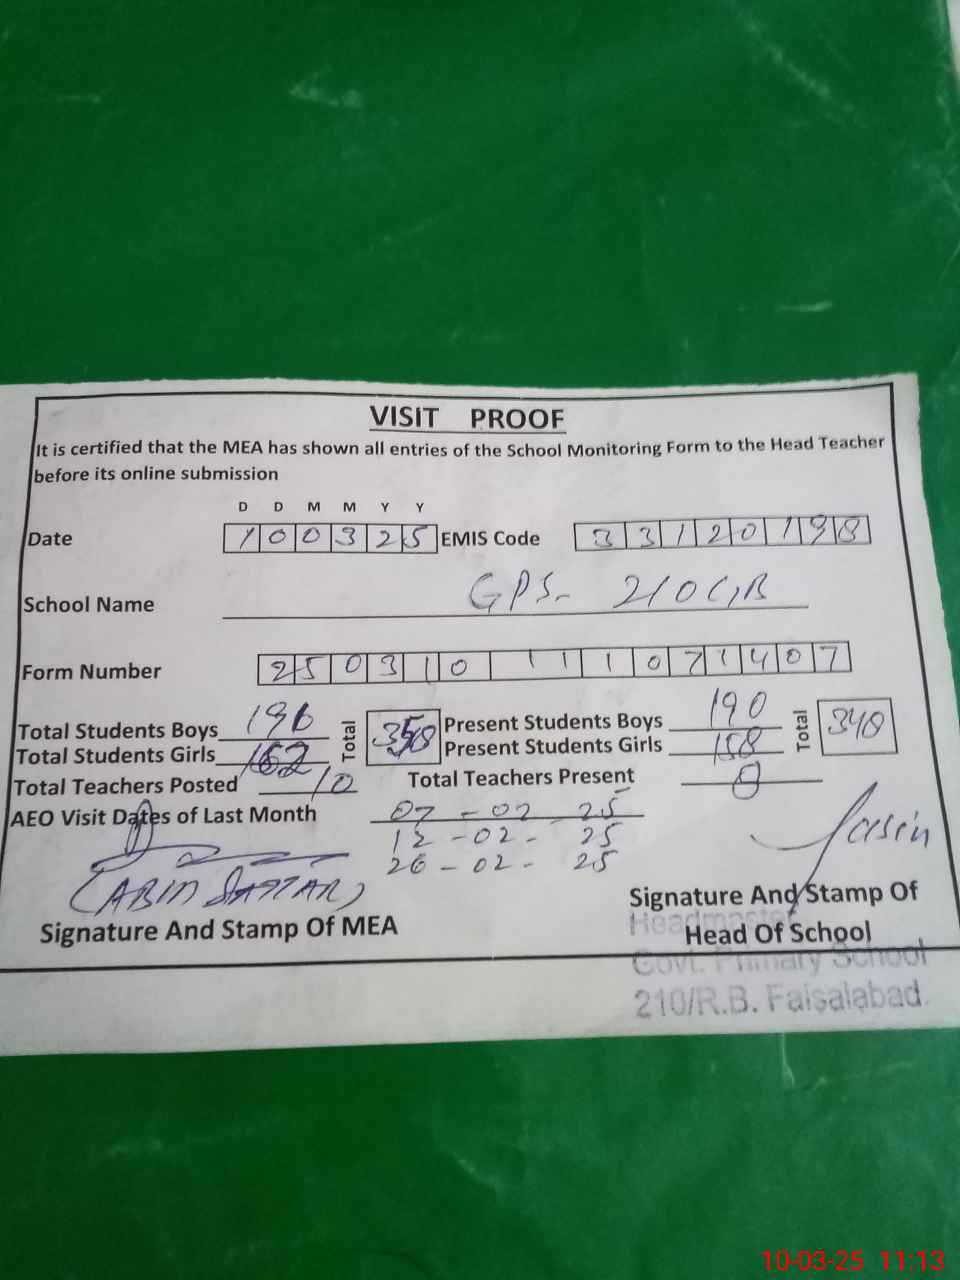 VISIT PROOF
It is certified that the MEA has shown all entries of the School Monitoring Form to the Head Teacher
before its online submission
D D M M Y Y
Date 1 0 0 3 2 5 EMIS Code 3 3 1 2 0 1 9 8
School Name GPS- 210 GB
Form Number 2 5 0 3 1 0 1 1 1 0 7 1 4 0 7
Total Students Boys 196 Total 358 Present Students Boys 190 Total 348
Total Students Girls 162 Present Students Girls 158
Total Teachers Posted 10 Total Teachers Present 8
AEO Visit Dates of Last Month 07-02-25
12-02-25
26-02-25
(ABID SATTAR)
Signature And Stamp Of MEA
Signature And Stamp Of
Head Of School
Headmaster
Govt. Primary School
210/R.B. Faisalabad
10-03-25 11:13